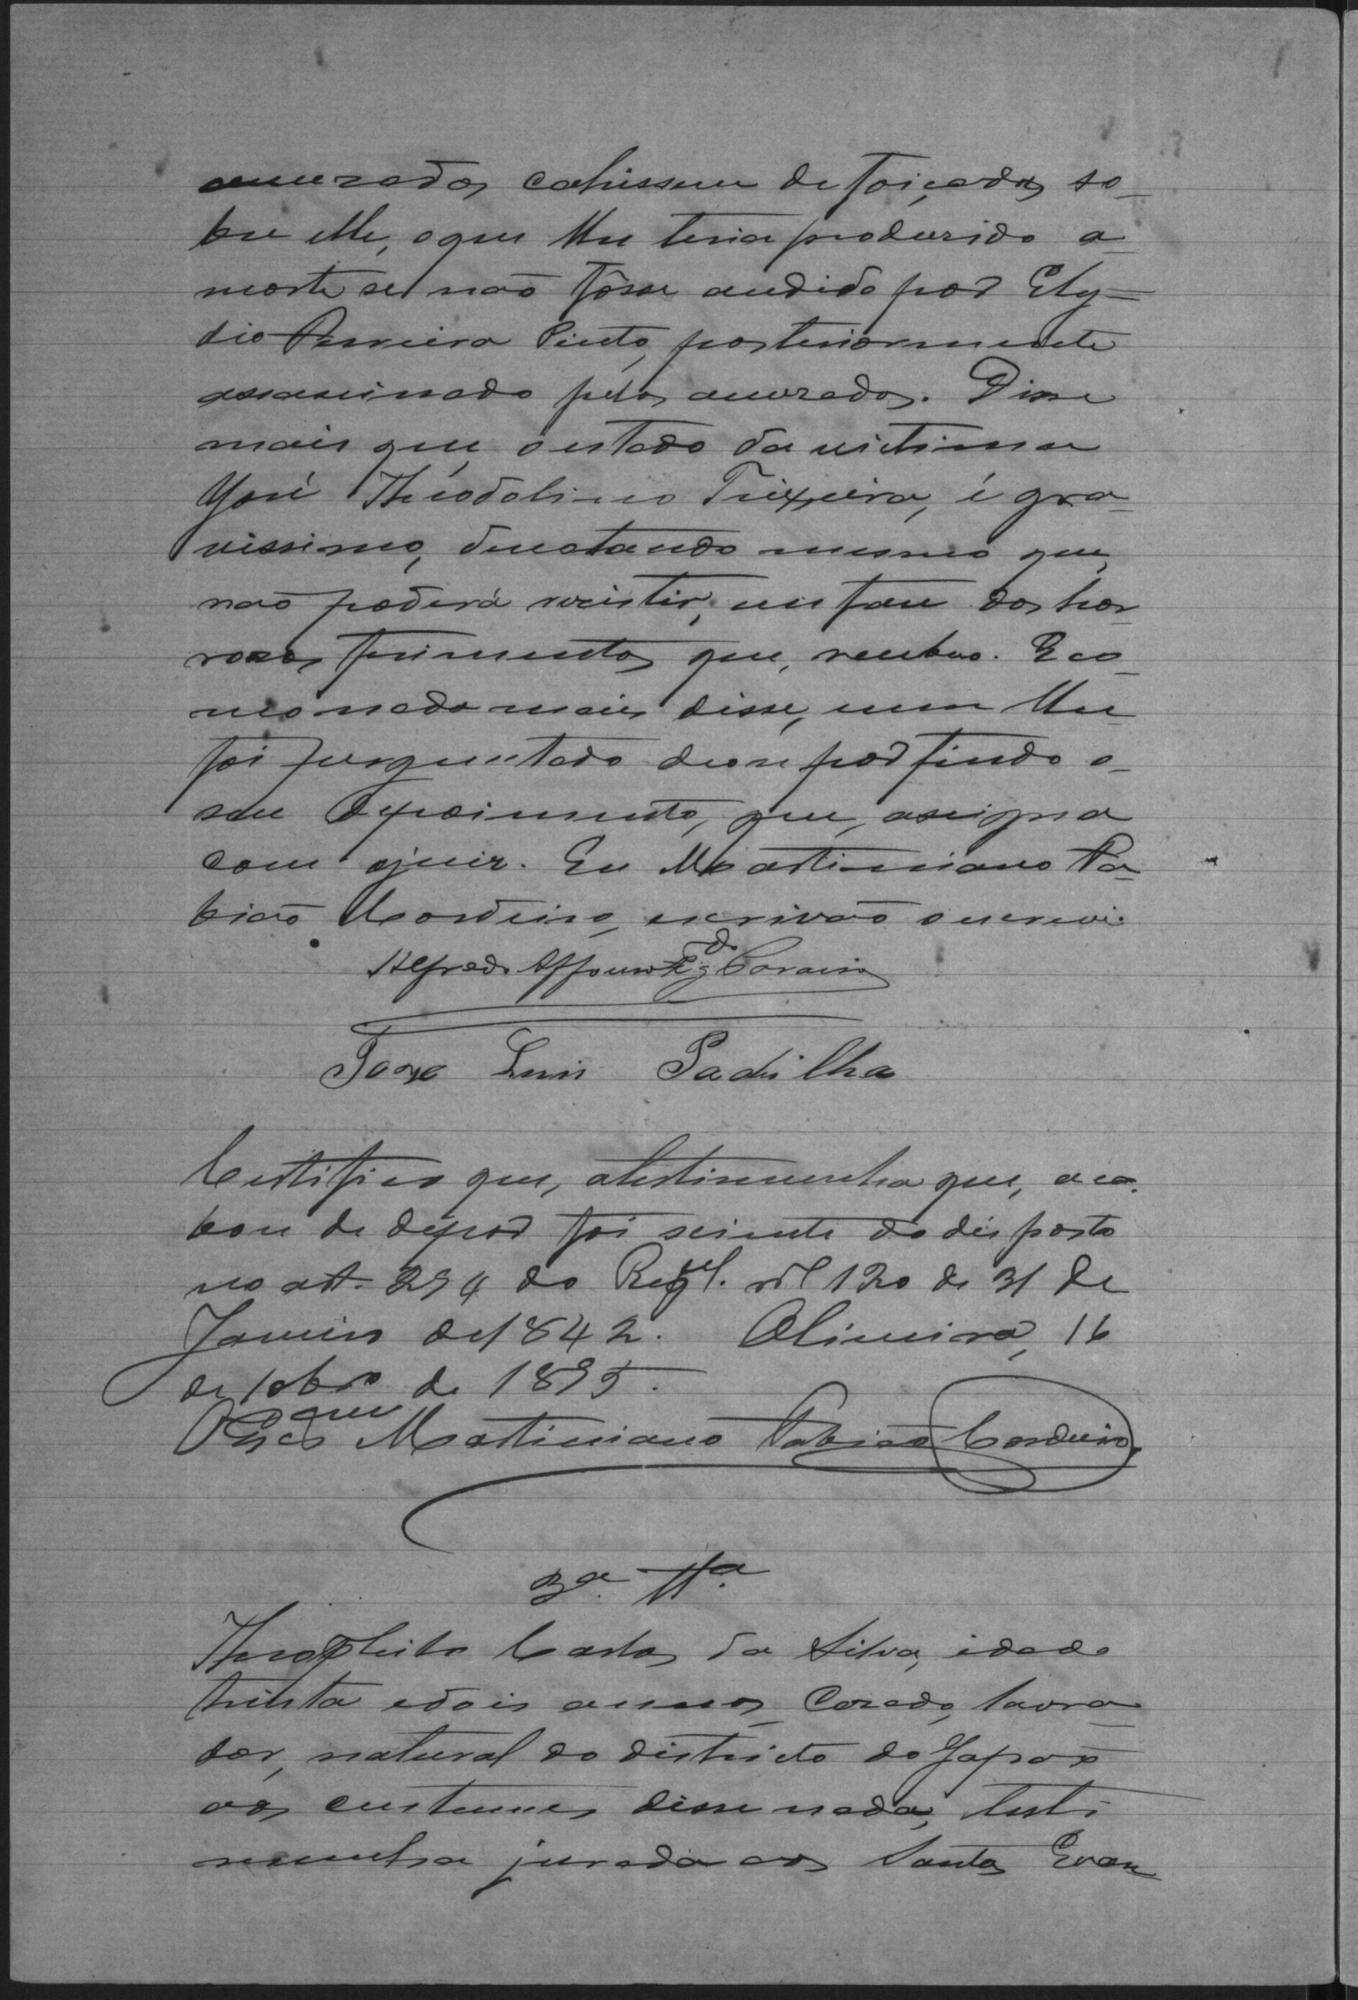 accusados cahissem de foiçadas so-
bre elle, o que lhe teria produzido a
morte se não fôsse accudido por Ely-
dio Ferreira Pinto, posteriormente
assassinado pelos accusados. Disse
mais que o estado da victima
José Theodolino Teixeira, é gra-
vissimo, denotando mesmo que,
não poderá resistir, em face dos hor-
rosos ferimentos que, recebeu. E co-
mo nada mais disse, nem lhe
foi perguntado deo-se por findo o
seu depoimento, que, assigna
com o juiz. Eu Martiniano Fa-
bião Cordeiro, escrivão o escrevi.
Alfredo Affonso
José Luis Padilha
Certifico que, a testimunha que, aca-
bou de depor foi sciente do disposto
no art. 294 do Regul. nº 120 de 31 de
Janeiro de 1842. Oliveira, 16
de 10bro de 1895.
O Escam Martiniano Fabião Cordeiro.
3ª Ttª
Theophilo Carlos da Silva, idade
trinta e dois annos, Casado, lavra-
dor, natural do districto do Japão
aos custumes disse nada, testi-
munha jurada aos Santos Evan